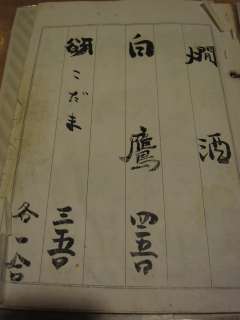 燗酒
白鷹 四五〇
こだま 三五〇
各一合